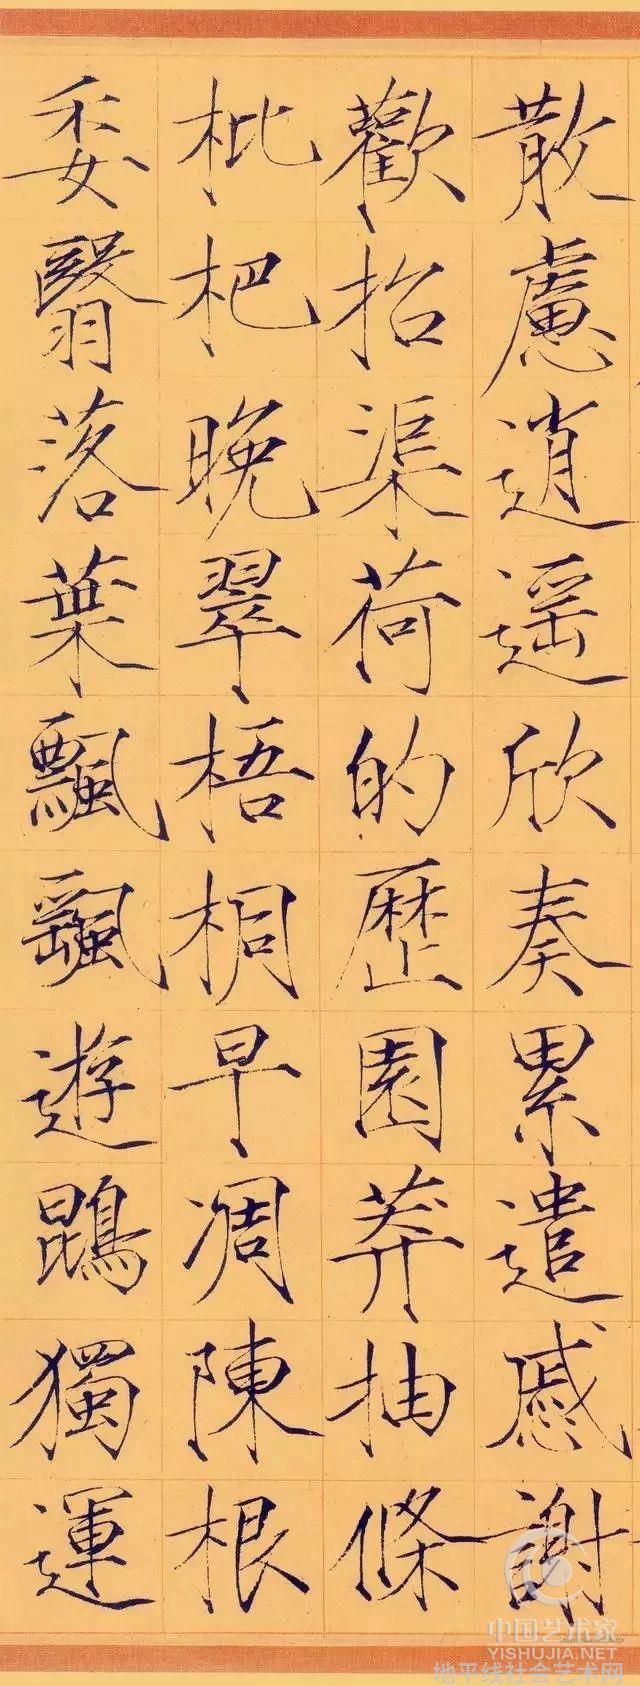 散慮逍遥欣奏累遣慼謝
歡招渠荷的歷園莽抽條
枇杷晚翠梧桐早凋陳根
委翳落葉飄颻遊鵾獨運
中国艺术家
YISHUJIA.NET
地平线社会艺术网